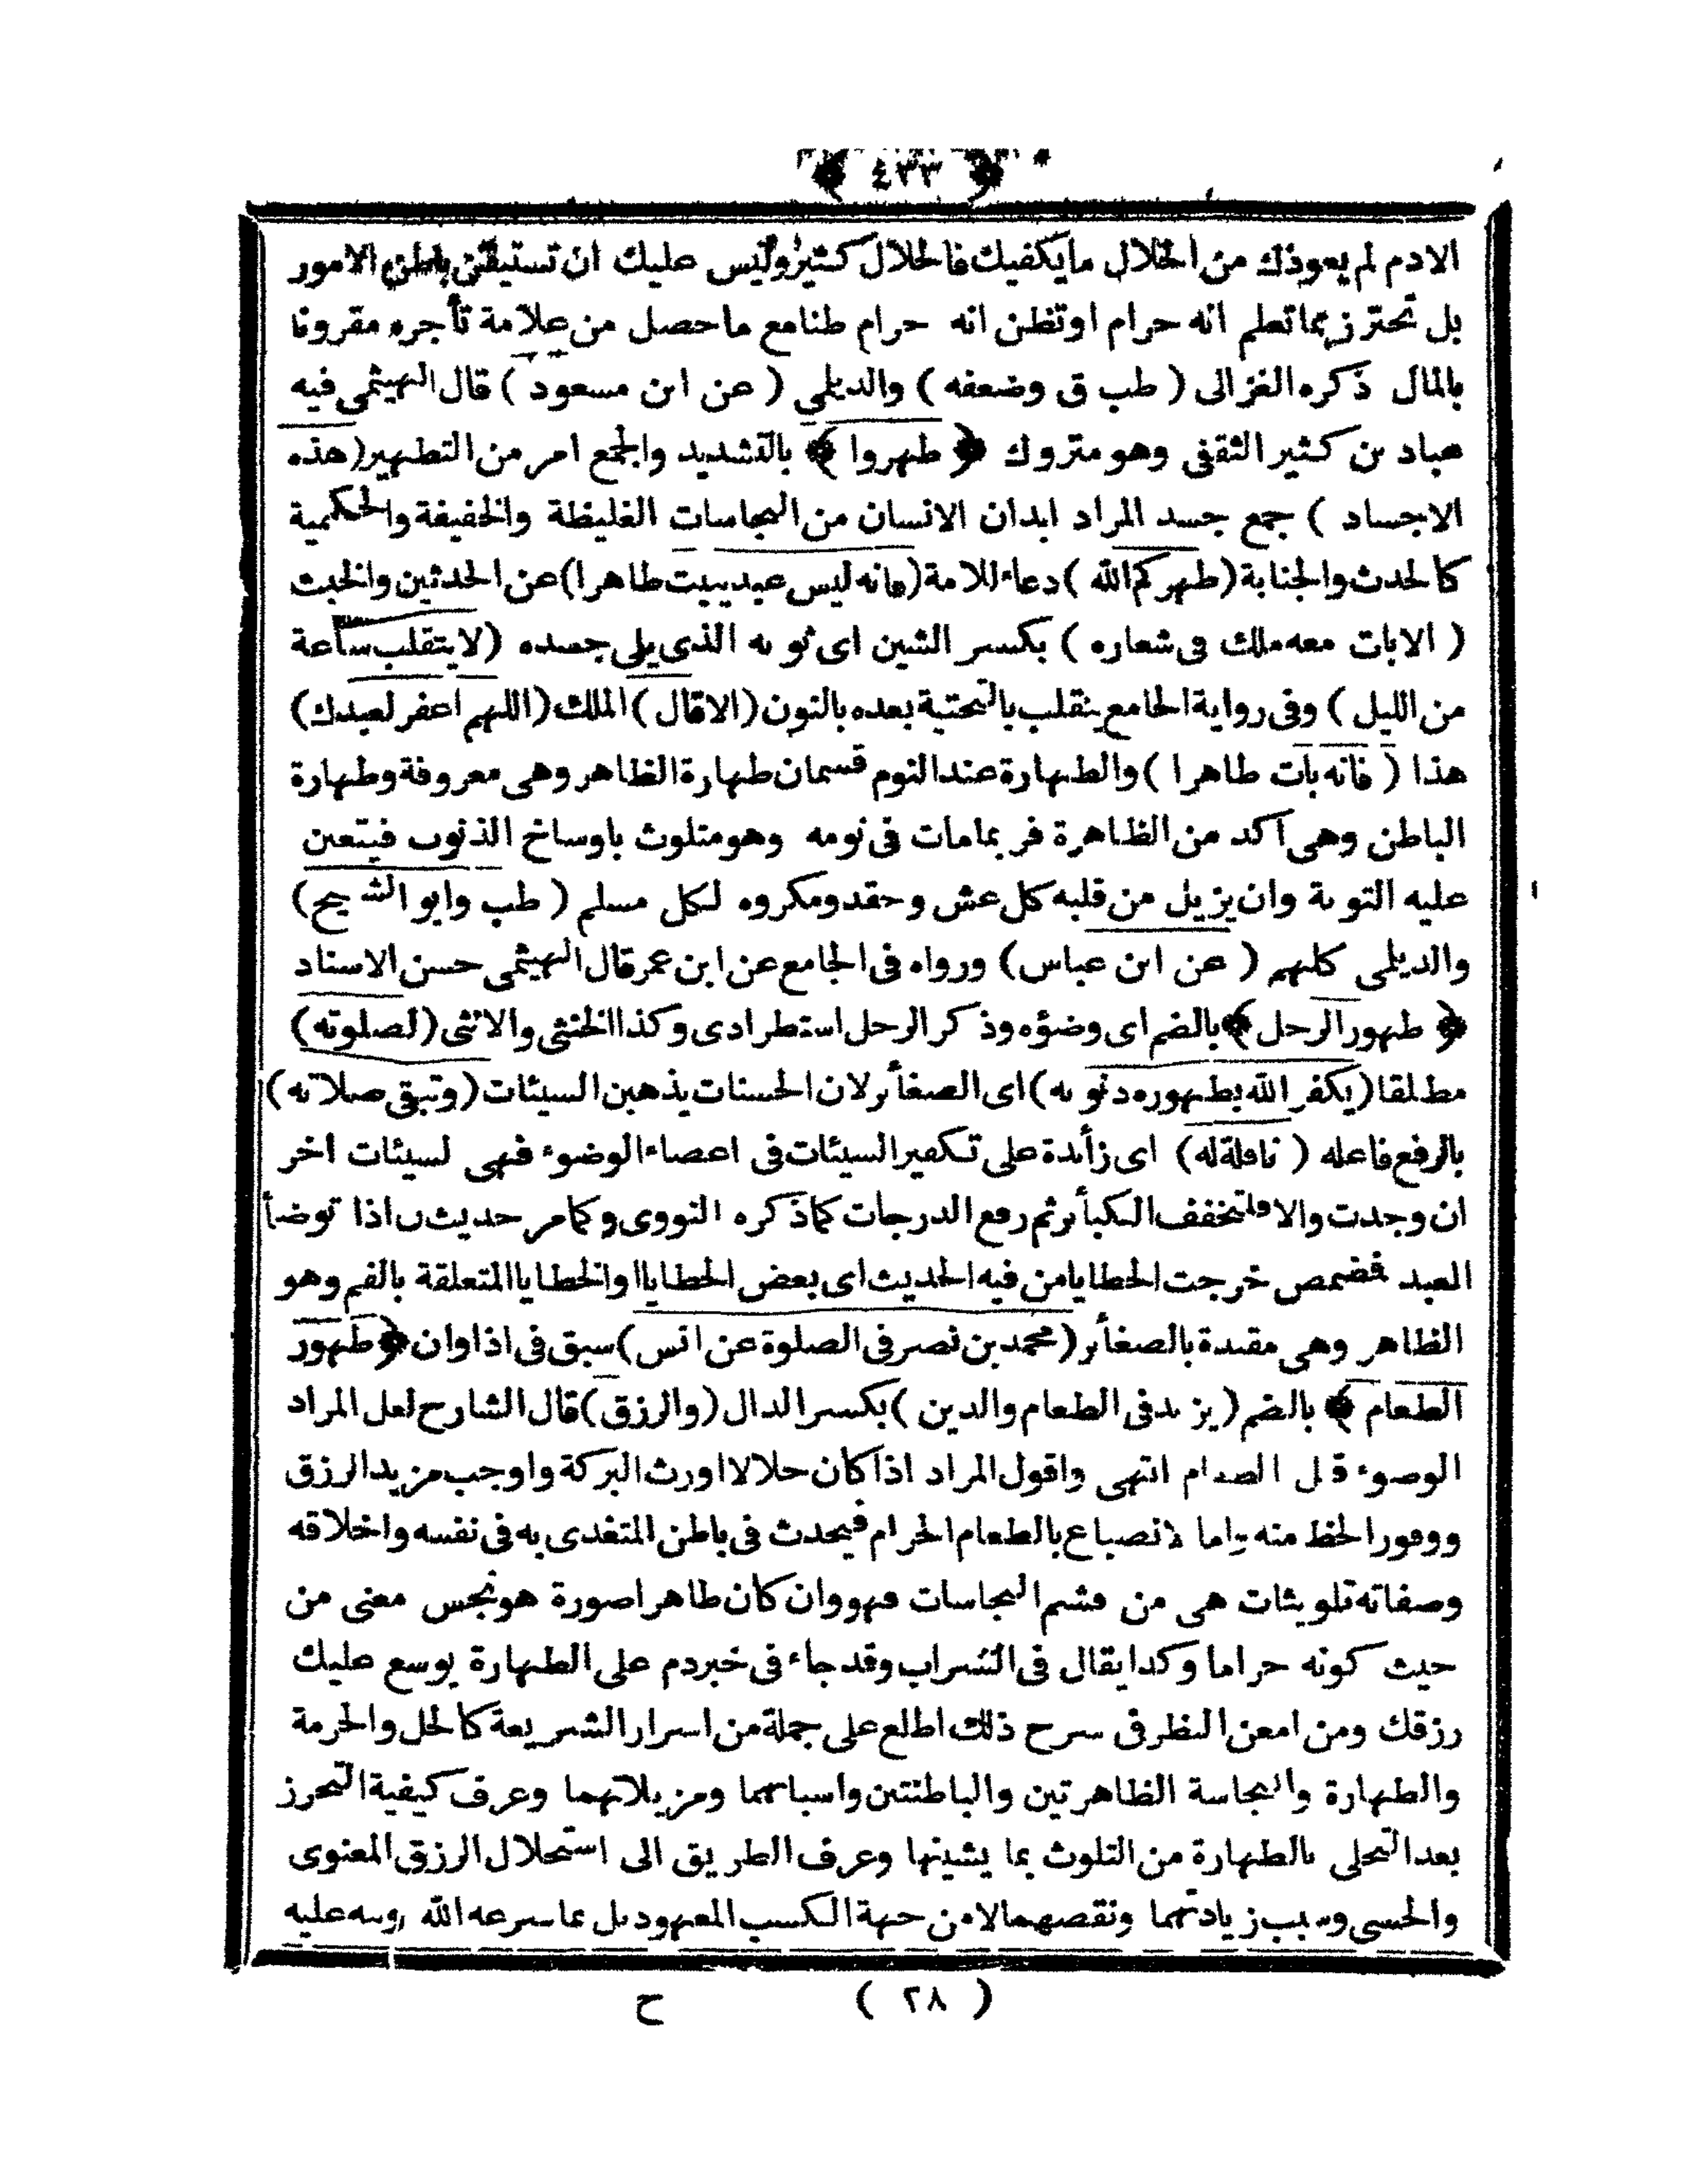 ﴿ ٤٣٣ ﴾
الادم لم يعوذك من الحلال مايكفيك فالحلال كثير وليس عليك ان تستيقن باطن الامور
بل تحترز مماتعلم انه حرام اوتظن انه حرام ظنا مع ماحصل من علامة تأجره مقرونا
بالمال ذكره الغزالى ( طب ق وضعفه ) والديلمى ( عن ابن مسعود ) قال الهيثمى فيه
عباد بن كثير الثقفى وهو متروك ﴿ طهروا ﴾ بالتشديد والجمع امر من التطهير ( هذه
الاجساد ) جمع جسد المراد ابدان الانسان من النجاسات الغليظة والخفيفة والحكمية
كالحدث والجنابة ( طهركم الله ) دعاء للامة ( فانه ليس عبد يبيت طاهرا ) عن الحدثين والخبث
( الابات معه ملك فى شعاره ) بكسر الشين اى ثوبه الذى يلى جسده ( لا يتقلب ساعة
من الليل ) وفى رواية الجامع ينقلب بالتحتية بعده بالنون ( الاقال ) الملك ( اللهم اغفر لعبدك )
هذا ( فانه بات طاهرا ) والطهارة عند النوم قسمان طهارة الظاهر وهى معروفة وطهارة
الباطن وهى آكد من الظاهرة فربمامات فى نومه وهو متلوث باوساخ الذنوب فيتعين
عليه التوبة وان يزيل من قلبه كل غش وحقد ومكروه لكل مسلم ( طب وابو الشيخ )
والديلمى كلهم ( عن ابن عباس ) ورواه فى الجامع عن ابن عمر قال الهيثمى حسن الاسناد
﴿ طهور الرجل ﴾ بالضم اى وضؤه وذكر الرجل استطرادى وكذا الخنثى والانثى ( لصلوته )
مطلقا ( يكفر الله بطهوره ذنوبه ) اى الصغائر لان الحسنات يذهبن السيئات ( وتبقى صلاته )
بالرفع فاعله ( نافلة له ) اى زائدة على تكفير السيئات فى اعضاء الوضوء فهى لسيئات اخر
ان وجدت والا فلتخفف الكبائر ثم رفع الدرجات كماذكره النووى وكمامر حديث ن اذا توضأ
العبد فضمض خرجت الخطايا من فيه الحديث اى بعض الخطايا والخطايا المتعلقة بالفم وهو
الظاهر وهى مقيدة بالصغائر ( محمد بن نصر فى الصلوة عن انس ) سبق فى اذا وان ﴿ طهور
الطعام ﴾ بالضم ( يزيد فى الطعام والدين ) بكسر الدال ( والرزق ) قال الشارح لعل المراد
الوضوء قبل الطعام انتهى واقول المراد اذا كان حلالا اورث البركة واوجب مزيد الرزق
ووفور الحظ منه واما الانصباغ بالطعام الحرام فيحدث فى باطن المتغدى به فى نفسه واخلاقه
وصفاته تلويثات هى من قسم النجاسات فهو وان كان طاهرا صورة هو نجس معنى من
حيث كونه حراما وكذا يقال فى الشراب وقد جاء فى خبر دم على الطهارة يوسع عليك
رزقك ومن امعن النظر فى سرح ذلك اطلع على جملة من اسرار الشريعة كالحل والحرمة
والطهارة والنجاسة الظاهرتين والباطنتين واسبابهما ومزيلاتهما وعرف كيفية التحرز
بعد التحلى بالطهارة من التلوث بما يشينها وعرف الطريق الى استحلال الرزق المعنوى
والحسى وسبب زيادتهما ونقصهما لا من جهة الكسب المعهود بل بما شرعه الله ونبه عليه
( ٢٨ ) ح